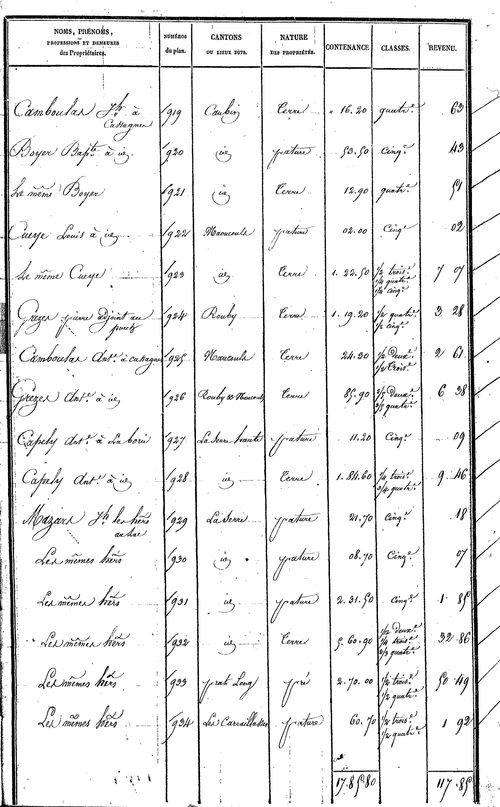 NOMS, PRÉNOMS, PROFESSIONS ET DEMEURES des Propriétaires. NUMÉROS du plan. CANTONS OU LIEUX DITS. NATURE DES PROPRIÉTÉS. CONTENANCE. CLASSES. REVENU.
Camboulas Jh. à Cassagnes 1919 Caubin Terre " 16.20 quatr.e 63
Boyer Bapt.e à id. 1920 id. pature 53.50 Cinq.e 43
Le même Boyer 1921 id. Terre 12.90 quatr.e 51
Cueye Louis à id. 1922 pature 02.00 Cinq.e 02
Le même Cueye 1923 id. Terre 1. 22.50 1/2 trois.e 1/4 quatr.e 1/4 cinq.e 7 07
Grezes pierre adjoint au 1924 Rouby Terre 1. 19.20 1/2 quatr.e 1/2 cinq.e 3 28
Camboulas Ant.e à Cassagnes 1925 Terre 24.30 1/2 Deux.e 1/2 trois.e 2 61
Grezes Ant.e à id. 1926 Rouby & Terre 85.90 Deux.e quatr.e 6 38
Capely Ant.e à La borie 1927 La serre haute pature 11.20 Cinq.e 09
Capely Ant.e à id. 1928 id. Terre 1. 84.60 1/4 trois.e 3/4 quatr.e 9 46
Mazars Jh. les hérs 1929 La serre pature 21.70 Cinq.e 18
Les mêmes hérs 1930 id. pature 08.70 Cinq.e 07
Les mêmes hérs 1931 id. pature 2. 31.50 Cinq.e 1 85
Les mêmes hérs 1932 id. Terre 5. 60.90 Deux.e trois.e quatr.e 32 86
Les mêmes hérs 1933 prat Long pré 2. 70.00 1/2 trois.e 1/2 quatr.e 50 49
Les mêmes hérs 1934 pature 60.70 1/2 trois.e 1/2 quatr.e 1 92
17.85.80 117.85